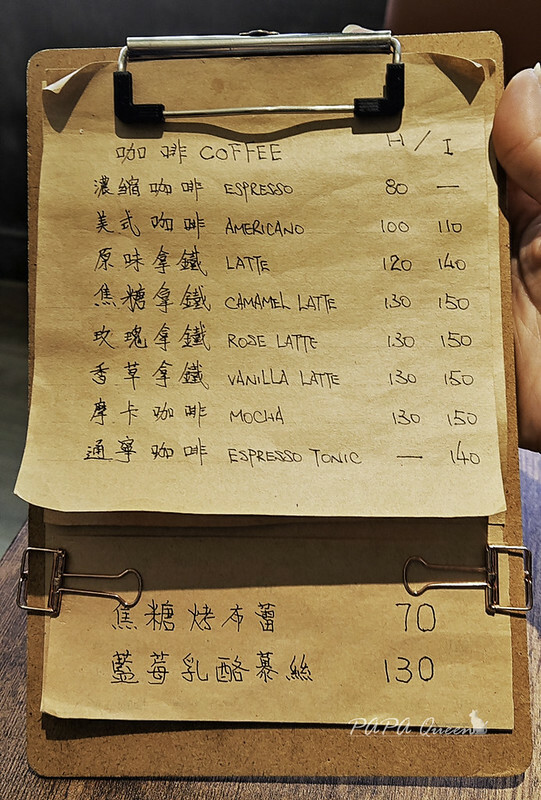 咖啡 COFFEE H / I
濃縮咖啡 ESPRESSO 80 —
美式咖啡 AMERICANO 100 110
原味拿鐵 LATTE 120 140
焦糖拿鐵 CAMAMEL LATTE 130 150
玫瑰拿鐵 ROSE LATTE 130 150
香草拿鐵 VANILLA LATTE 130 150
摩卡咖啡 MOCHA 130 150
通寧咖啡 ESPRESSO TONIC — 140
焦糖烤布蕾 70
藍莓乳酪慕絲 130
PAPA Queen